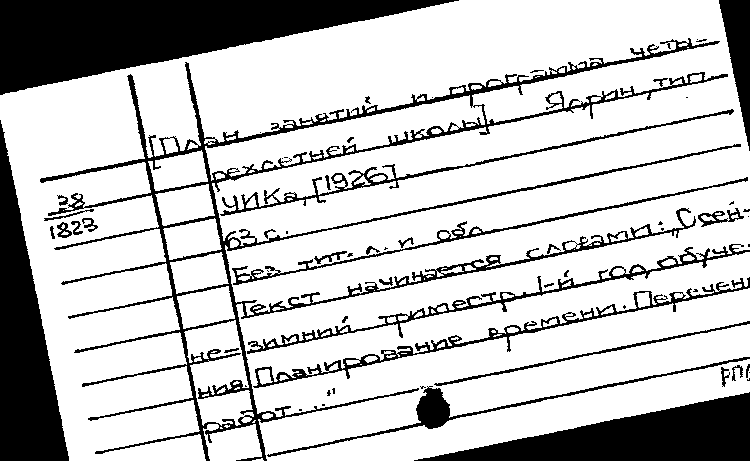 [План занятий и программа четы-
рехлетней школы]. Ядрин, тип.
28
1823
ЧИКа, [1926].
63 с.
Без тит. л. и обл.
Текст начинается словами: „Осен-
не-зимний триместр. 1-й год обуче-
ния. Планирование времени. Перечень
работ..."